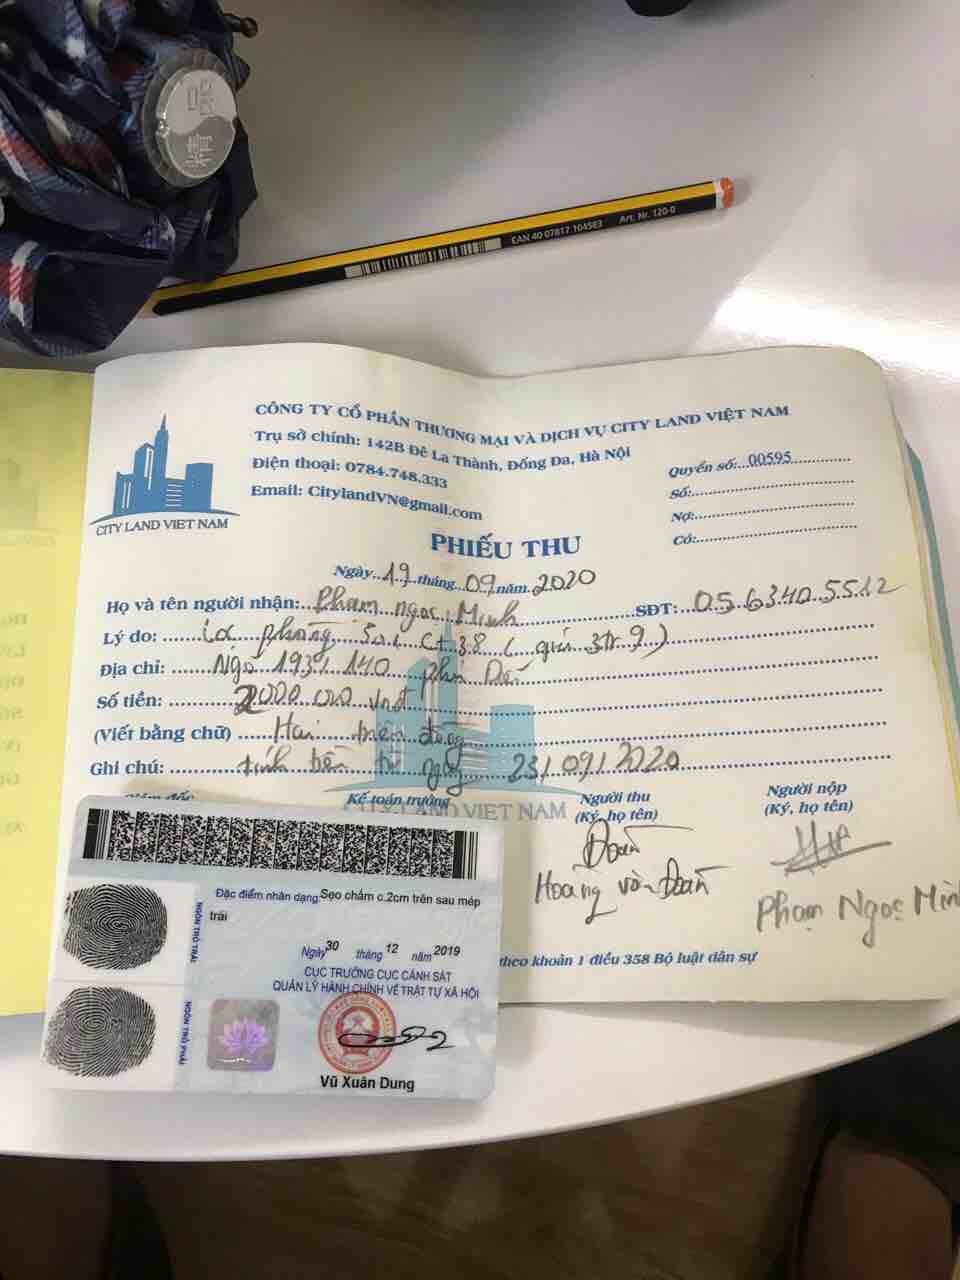 EAN 40 07817 104583 Art. Nr. 120-0
CÔNG TY CỔ PHẦN THƯƠNG MẠI VÀ DỊCH VỤ CITY LAND VIỆT NAM
Trụ sở chính: 142B Đê La Thành, Đống Đa, Hà Nội
Điện thoại: 0784.748.333
Email: CitylandVN@gmail.com
CITY LAND VIET NAM
Quyển số: 00595
Số:
Nợ:
Có:
PHIẾU THU
Ngày 19 tháng 09 năm 2020
Họ và tên người nhận: Phạm Ngọc Minh SĐT: 05 6340 5512
Lý do: cọc phòng 501 CT38 ( giá 3tr9 )
Địa chỉ: Ngõ 193/140 phú Dô
Số tiền: 2000 000 vnđ
(Viết bằng chữ) Hai triệu đồng
Ghi chú: tính tiền từ ngày 25/09/2020
Giám đốc Kế toán trưởng Người thu Người nộp
(Ký, họ tên) (Ký, họ tên)
CITY LAND VIET NAM
Đoàn
Hoàng văn Đoàn
Phạm Ngọc Minh
theo khoản 1 điều 358 Bộ luật dân sự
Đặc điểm nhân dạng: Sẹo chấm c.2cm trên sau mép
trái
Ngày 30 tháng 12 năm 2019
CỤC TRƯỞNG CỤC CẢNH SÁT
QUẢN LÝ HÀNH CHÍNH VỀ TRẬT TỰ XÃ HỘI
Vũ Xuân Dung
NGÓN TRỎ TRÁI
NGÓN TRỎ PHẢI